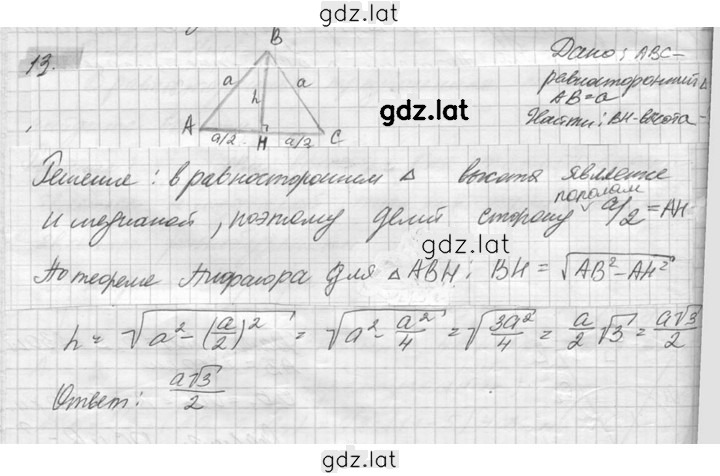 gdz.lat
13.
B
a
a
h
A
a/2
H
a/2
C
Дано: ABC -
равносторонний △
AB = a
Найти: BH - высота -
gdz.lat
Решение: в равностороннем △ высота является
и медианой, поэтому делит сторону пополам a/2 = AH
gdz.lat
По теореме Пифагора для △ABH: BH = √(AB² - AH²)
h = √(a² - (a/2)²) = √(a² - a²/4) = √(3a²/4) = a/2 √3 = a√3/2
gdz.lat
Ответ: a√3/2
gdz.lat